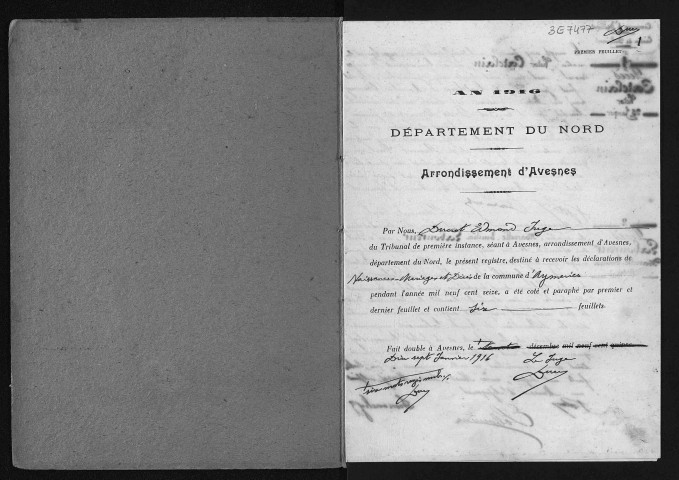 3E7477
1
PREMIER FEUILLET
AN 1916
DÉPARTEMENT DU NORD
Arrondissement d'Avesnes
Par Nous, Edmond Juge
du Tribunal de première instance, séant à Avesnes, arrondissement d'Avesnes,
département du Nord, le présent registre, destiné à recevoir les déclarations de
Naissances Mariages et Décès de la commune d'Aymeries
pendant l'année mil neuf cent seize, a été coté et paraphé par premier et
dernier feuillet et contient six feuillets.
Fait double à Avesnes, le décembre mil neuf cent quinze
Dix sept Janvier 1916 Le Juge